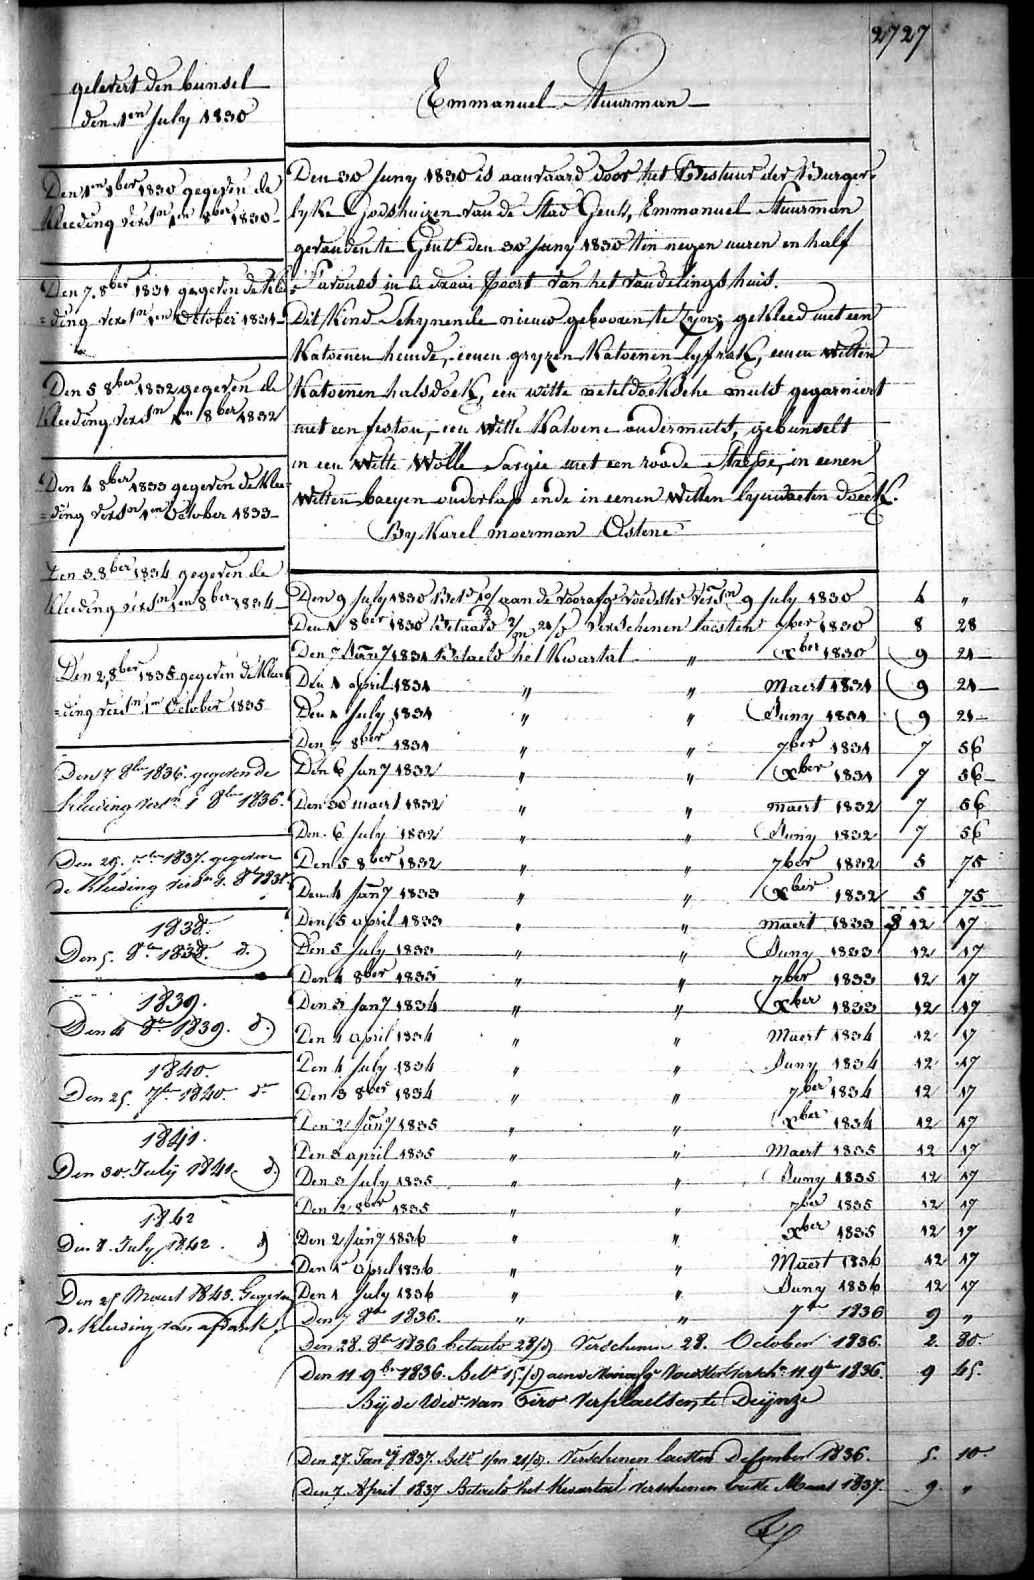 2727
Emmanuel Stuurman
gelevert den bunsel
den 1en July 1830
Den 1en 8ber 1830 gegeven de
kleeding versn 1en 8ber 1830
Den 7. 8ber 1831 gegeven de klee
=ding versn 1en October 1831
Den 5 8ber 1832 gegeven de
kleeding versn 1en 8ber 1832
Den 4 8ber 1833 gegeven de klee
=ding versn 1en October 1833
Den 3. 8ber 1834 gegeven de
kleeding versn 1en 8ber 1834
Den 2, 8ber 1835 gegeven de klee
=ding versn 1en October 1835
Den 7 8ber 1836. gegeven de
kleeding versn 1 8ber 1836.
Den 29. 1837. gegeven
de kleeding versn 1. 8ber 1837
1838.
Den 5. 8ber 1838. d.
1839.
Den 4 8ber 1839. d.
1840.
Den 25. 7ber 1840. do
1841.
Den 30. July 1841. d.
1842
Den 8. July 1842. d
Den 25 Maert 1843. Gegeven
de kleeding van afdank
Den 30 Juny 1830 is aanvaard door het Bestuur der Burger-
lyke Godshuizen van de Stad Gent, Emmanuel Stuurman
gevonden te Gent den 30 Juny 1830 ten negen uuren en half
's avonds in de draai poort van het vondelings huis.
Dit kind Schynende nieuw gebooren te zyn, gekleed met een
Katoenen hemde, eenen gryzen Katoenen lyfrok, eenen witten
Katoenen halsdoek, een witte neteldoeksche muts gegarniert
met een feston, een witte Katoene ondermuts, gebunselt
in een witte wolle Sargie met een roode Streepe, in eenen
witten baeyen onderlap ende in eenen witten lynwaeten doeck.
By Karel moerman Astene
Den 9 July 1830 Betd aan de voorafge voedster versn 9 July 1830 4 "
Den 1 8ber 1830 Betaald 2/m 21/d verschenen laesten 7ber 1830 8 28
Den 7 Jany 1831 Betaeld het Kwartal " Xber 1830 9 21
Den 1 april 1831 " " Maert 1831 9 21
Den 1 July 1831 " " Juny 1831 9 21
Den 7 8ber 1831 " " 7ber 1831 7 56
Den 6 Jany 1832 " " Xber 1831 7 56
Den 30 maert 1832 " " maert 1832 7 56
Den 6 July 1832 " " Juny 1832 7 56
Den 5 8ber 1832 " " 7ber 1832 5 75
Den 4 Jany 1833 " " Xber 1832 5 75
Den 5 april 1833 " " maert 1833 12 17
Den 5 July 1833 " " Juny 1833 12 17
Den 4 8ber 1833 " " 7ber 1833 12 17
Den 3 Jany 1834 " " Xber 1833 12 17
Den 4 april 1834 " " Maert 1834 12 17
Den 4 July 1834 " " Juny 1834 12 17
Den 3 8ber 1834 " " 7ber 1834 12 17
Den 2 Jany 1835 " " Xber 1834 12 17
Den 3 april 1835 " " Maert 1835 12 17
Den 3 July 1835 " " Juny 1835 12 17
Den 2 8ber 1835 " " 7ber 1835 12 17
Den 2 Jany 1836 " " Xber 1835 12 17
Den 1 april 1836 " " Maert 1836 12 17
Den 1 July 1836 " " Juny 1836 12 17
Den 7 8ber 1836. " " 7ber 1836 9 "
Den 28. 8ber 1836 betaeld 28/d verschenen 28. October 1836. 2. 80.
Den 11 9ber 1836. Betd 15/d aan de vorafge voedster versch. 11 9ber 1836. 9 45.
Bij de Wede van Tiro Verplaetsen, te Deijnze
Den 27. Januy 1837. Betd 1/m 21/d. verschenen laesten December 1836. 5. 10.
Den 7. April 1837 Betaeld het Kwartael verschenen laeste Maert 1837. 9 "